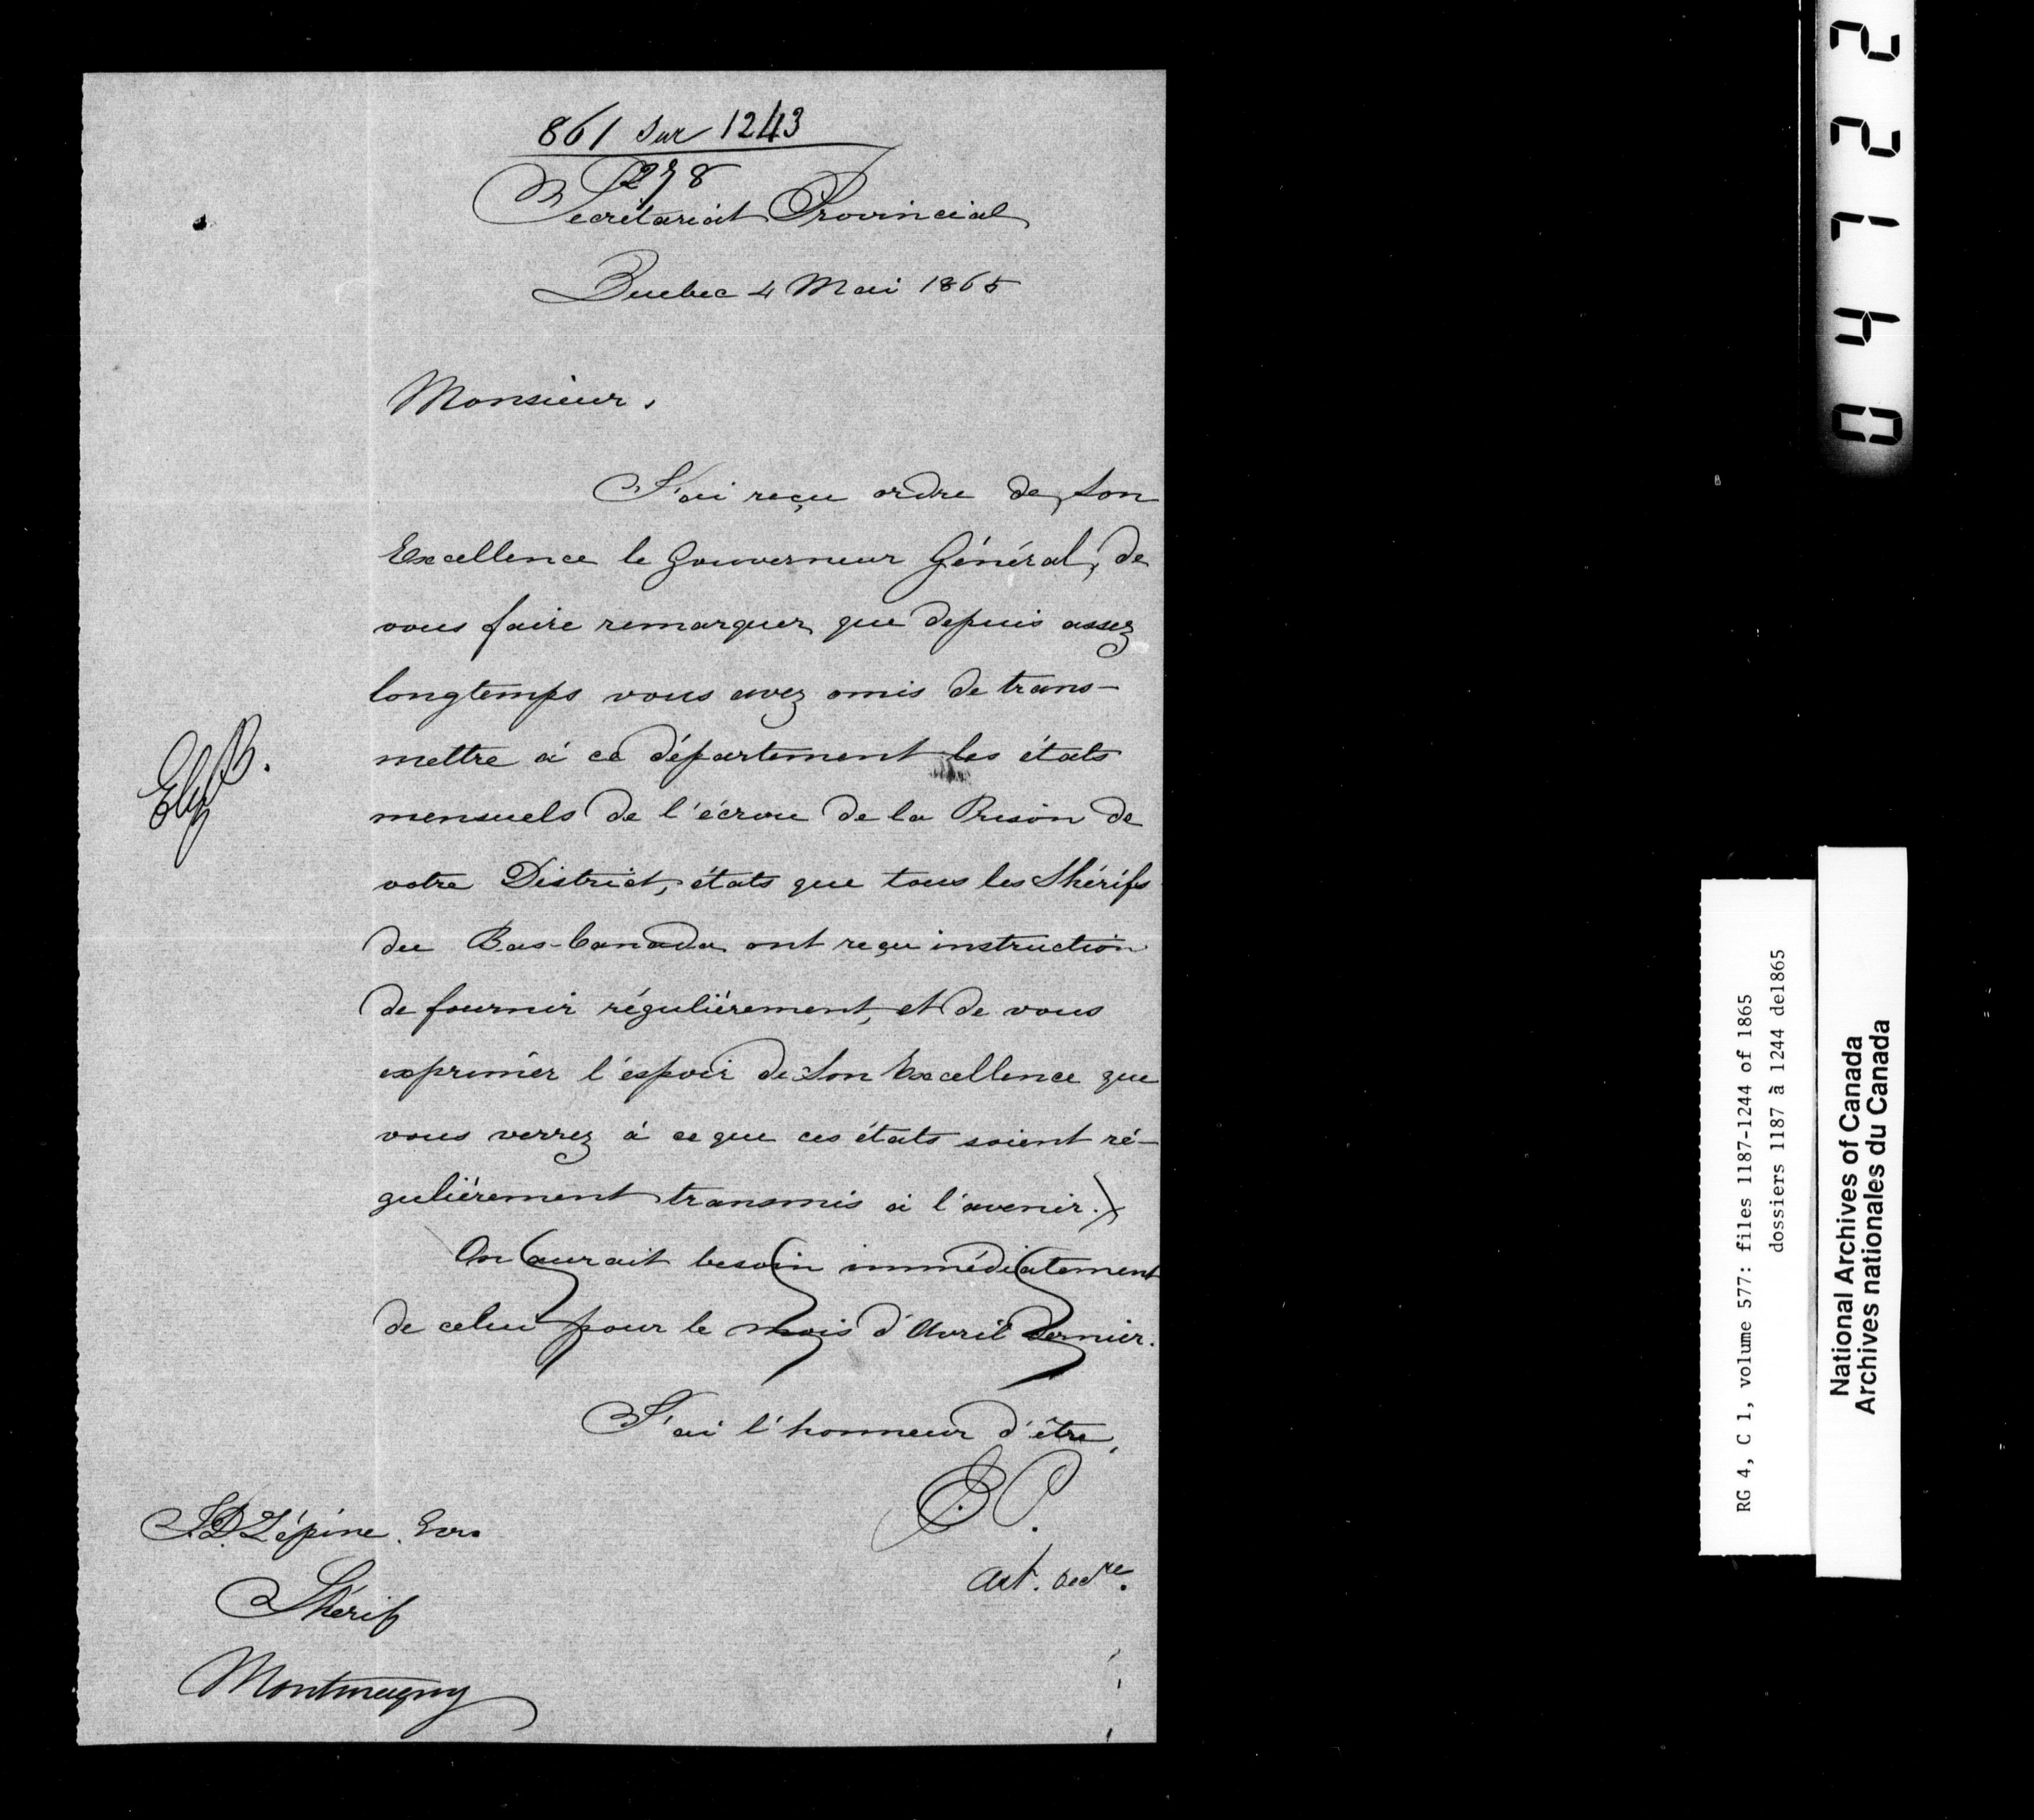 861 sur 1243
1278
Secrétariat Provincial
Quebec 4 Mai 1865
Monsieur,
J'ai reçu ordre de Son
Excellence le Gouverneur Général, de
vous faire remarquer que depuis assez
longtemps vous avez omis de trans-
mettre à ce département les états
mensuels de l'écrou de la Prison de
votre District, états que tous les Shérifs
du Bas-Canada ont reçu instruction
de fournir régulièrement, et de vous
exprimer l'espoir de Son Excellence que
vous verrez à ce que ces états soient ré-
gulièrement transmis à l'avenir.
On aurait besoin immédiatement
de celui pour le mois d'Avril dernier.
J'ai l'honneur d'être,
E.P.
Ast. Secre.
Lépine
Shérif
Montmagny
22140
RG 4, C 1, volume 577: files 1187-1244 of 1865
dossiers 1187 à 1244 de1865
National Archives of Canada
Archives nationales du Canada